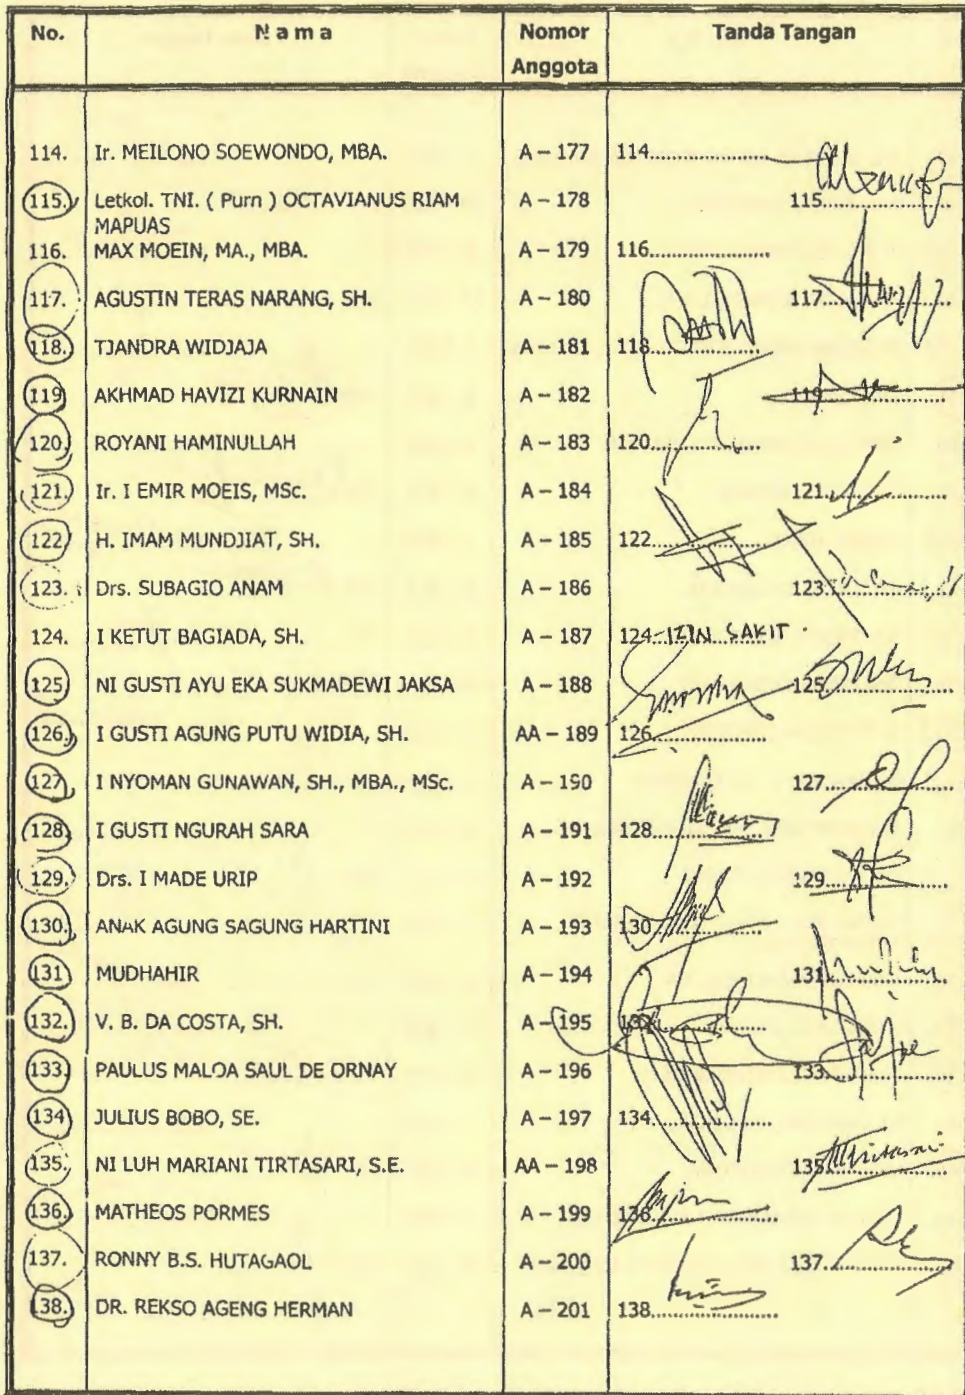 No. N a m a Nomor Anggota Tanda Tangan
114. Ir. MEILONO SOEWONDO, MBA. A – 177 114......................
115. Letkol. TNI. ( Purn ) OCTAVIANUS RIAM MAPUAS A – 178 115......................
116. MAX MOEIN, MA., MBA. A – 179 116......................
117. AGUSTIN TERAS NARANG, SH. A – 180 117......................
118. TJANDRA WIDJAJA A – 181 118......................
119 AKHMAD HAVIZI KURNAIN A – 182 119......................
120. ROYANI HAMINULLAH A – 183 120......................
121. Ir. I EMIR MOEIS, MSc. A – 184 121......................
122 H. IMAM MUNDJIAT, SH. A – 185 122......................
123. Drs. SUBAGIO ANAM A – 186 123......................
124. I KETUT BAGIADA, SH. A – 187 124 IZIN SAKIT .
125 NI GUSTI AYU EKA SUKMADEWI JAKSA A – 188 125......................
126. I GUSTI AGUNG PUTU WIDIA, SH. AA – 189 126......................
127. I NYOMAN GUNAWAN, SH., MBA., MSc. A – 190 127......................
128. I GUSTI NGURAH SARA A – 191 128......................
129. Drs. I MADE URIP A – 192 129......................
130. ANAK AGUNG SAGUNG HARTINI A – 193 130......................
131 MUDHAHIR A – 194 131......................
132. V. B. DA COSTA, SH. A – 195 132......................
133. PAULUS MALOA SAUL DE ORNAY A – 196 133......................
134 JULIUS BOBO, SE. A – 197 134......................
135. NI LUH MARIANI TIRTASARI, S.E. AA – 198 135......................
136. MATHEOS PORMES A – 199 136......................
137. RONNY B.S. HUTAGAOL A – 200 137......................
138. DR. REKSO AGENG HERMAN A – 201 138......................